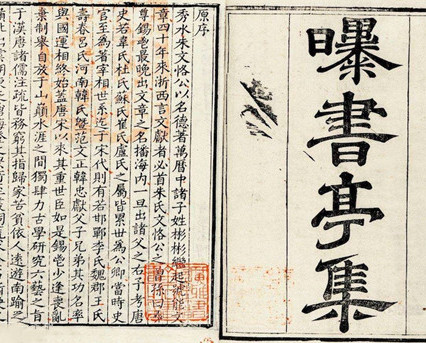 曝書亭集
原序
秀水朱文恪公以名德著萬曆中諸子姓彬彬繼起號能文
章四十年來浙西言文獻者必首朱氏文恪公之曾孫曰
尊錫鬯最晚出文章之名播海内一旦出諸父之右予考唐
史若韋氏杜氏蘇氏崔氏盧氏之屬皆累世為公卿當時史
官至為著宰相世系迄于宋代則有若邯鄲李氏魏郡王氏
壽春吕氏河南韓氏暨范文正韓忠獻父子兄弟其功名率
與國運相終始蓋唐宋以來其重世臣如是錫鬯少逢喪亂
棄制舉自放于山顛水涯之間獨肆力古學研究六藝之旨
于漢唐諸儒注疏皆務窮其指歸家苦貧依人遠遊南踰